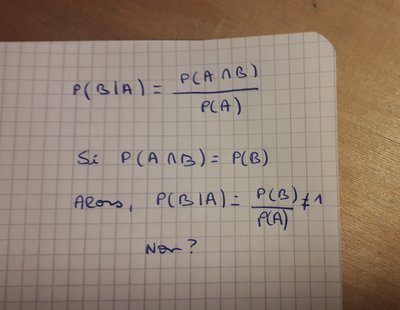 P(B|A) = P(A∩B) / P(A)
Si P(A∩B) = P(B)
Alors, P(B|A) = P(B) / P(A) ≠ 1
Non ?